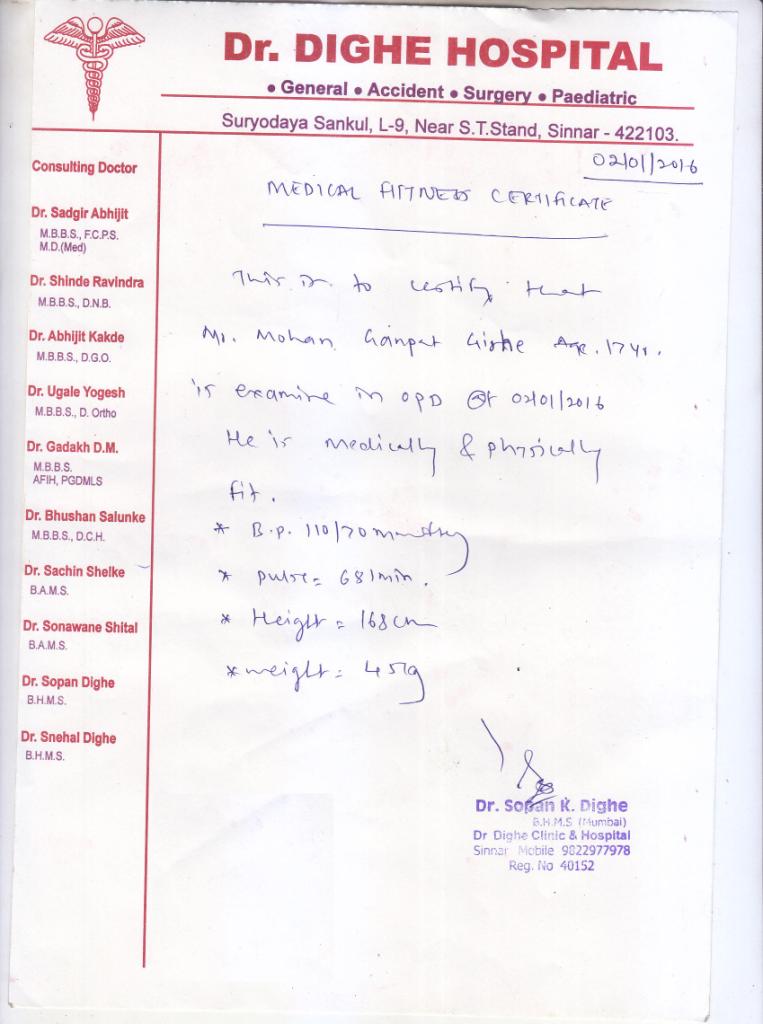 Dr. DIGHE HOSPITAL
• General • Accident • Surgery • Paediatric
Suryodaya Sankul, L-9, Near S.T.Stand, Sinnar - 422103.
02/01/2016
MEDICAL FITTNESS CERTIFICATE
This is to certify that
Mr. Mohan Ganpat Age. 17 yr.
is examine in OPD 02/01/2016
He is medically & physically
fit.
* B.P. 110/70 mmHg
* Pulse = 68/min.
* Height = 168 cm
* weight = 45kg
Consulting Doctor
Dr. Sadgir Abhijit
M.B.B.S., F.C.P.S.
M.D.(Med)
Dr. Shinde Ravindra
M.B.B.S., D.N.B.
Dr. Abhijit Kakde
M.B.B.S., D.G.O.
Dr. Ugale Yogesh
M.B.B.S., D. Ortho
Dr. Gadakh D.M.
M.B.B.S.
AFIH, PGDMLS
Dr. Bhushan Salunke
M.B.B.S., D.C.H.
Dr. Sachin Shelke
B.A.M.S.
Dr. Sonawane Shital
B.A.M.S.
Dr. Sopan Dighe
B.H.M.S.
Dr. Snehal Dighe
B.H.M.S.
Dr. Sopan K. Dighe
B.H.M.S (Mumbai)
Dr Dighe Clinic & Hospital
Sinnar Mobile 9822977978
Reg. No 40152